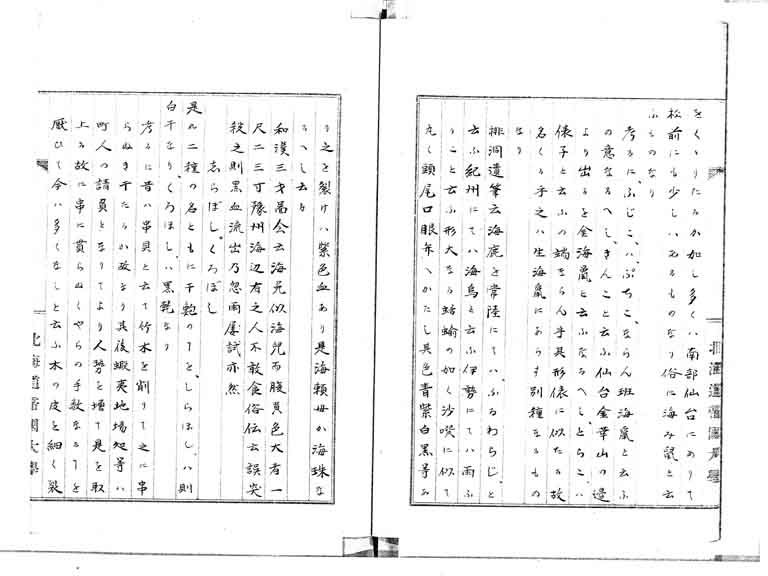 をくゝりたるか如し多くハ南部仙台にありて
松前にも少しハあるものなり俗に海み鼠と云
ふものなり
考るに、ふじこ、ハ、ぷちこ、ならん班海鼠と云ふ
の意なるへし、きんこ、と云ふ仙台金華山の邉
より出るを金海鼠と云ふなるへし、とらこ、ハ
俵子と云ふの端ならん乎其形俵に似たる故
名くる乎之ハ生海鼠にあらす別種なるもの
なり
排洞遺筆云海鹿を常陸にて、ハ、ふるわらじ、と
云ふ紀州にてハ海烏と云ふ伊勢にてハ雨ふ
りこと云ふ形大なる蛞蝓の如く沙噀に似て
丸く頭尾口眼弁へかたし其色青紫白黒等あ
り之を裂けハ紫色血あり是海賴母か海珠な
るへし云々
和漢三才圖会云海鹿似海兒而腹黄色大者一
尺二三寸豫州海辺有之人不敢食俗伝云誤突
殺之則黒血流出乃忽雨屢試亦然
しらぼし、くろぼし
是ハ二種の名ともに干鮑のこと、しらほし、ハ則
白干なり、くろほし、ハ黒乾なり
考るに昔ハ串貝と云て竹木を削りて之に串
らぬき干たるか故なり其後蝦夷地場処等ハ
町人の請負となりてより人勢を増て是を取
上る故に串に貫らぬくやらの手数なることを
厭ひて今ハ多くなしと云ふ木の皮を細く裂
北海道帝国大學